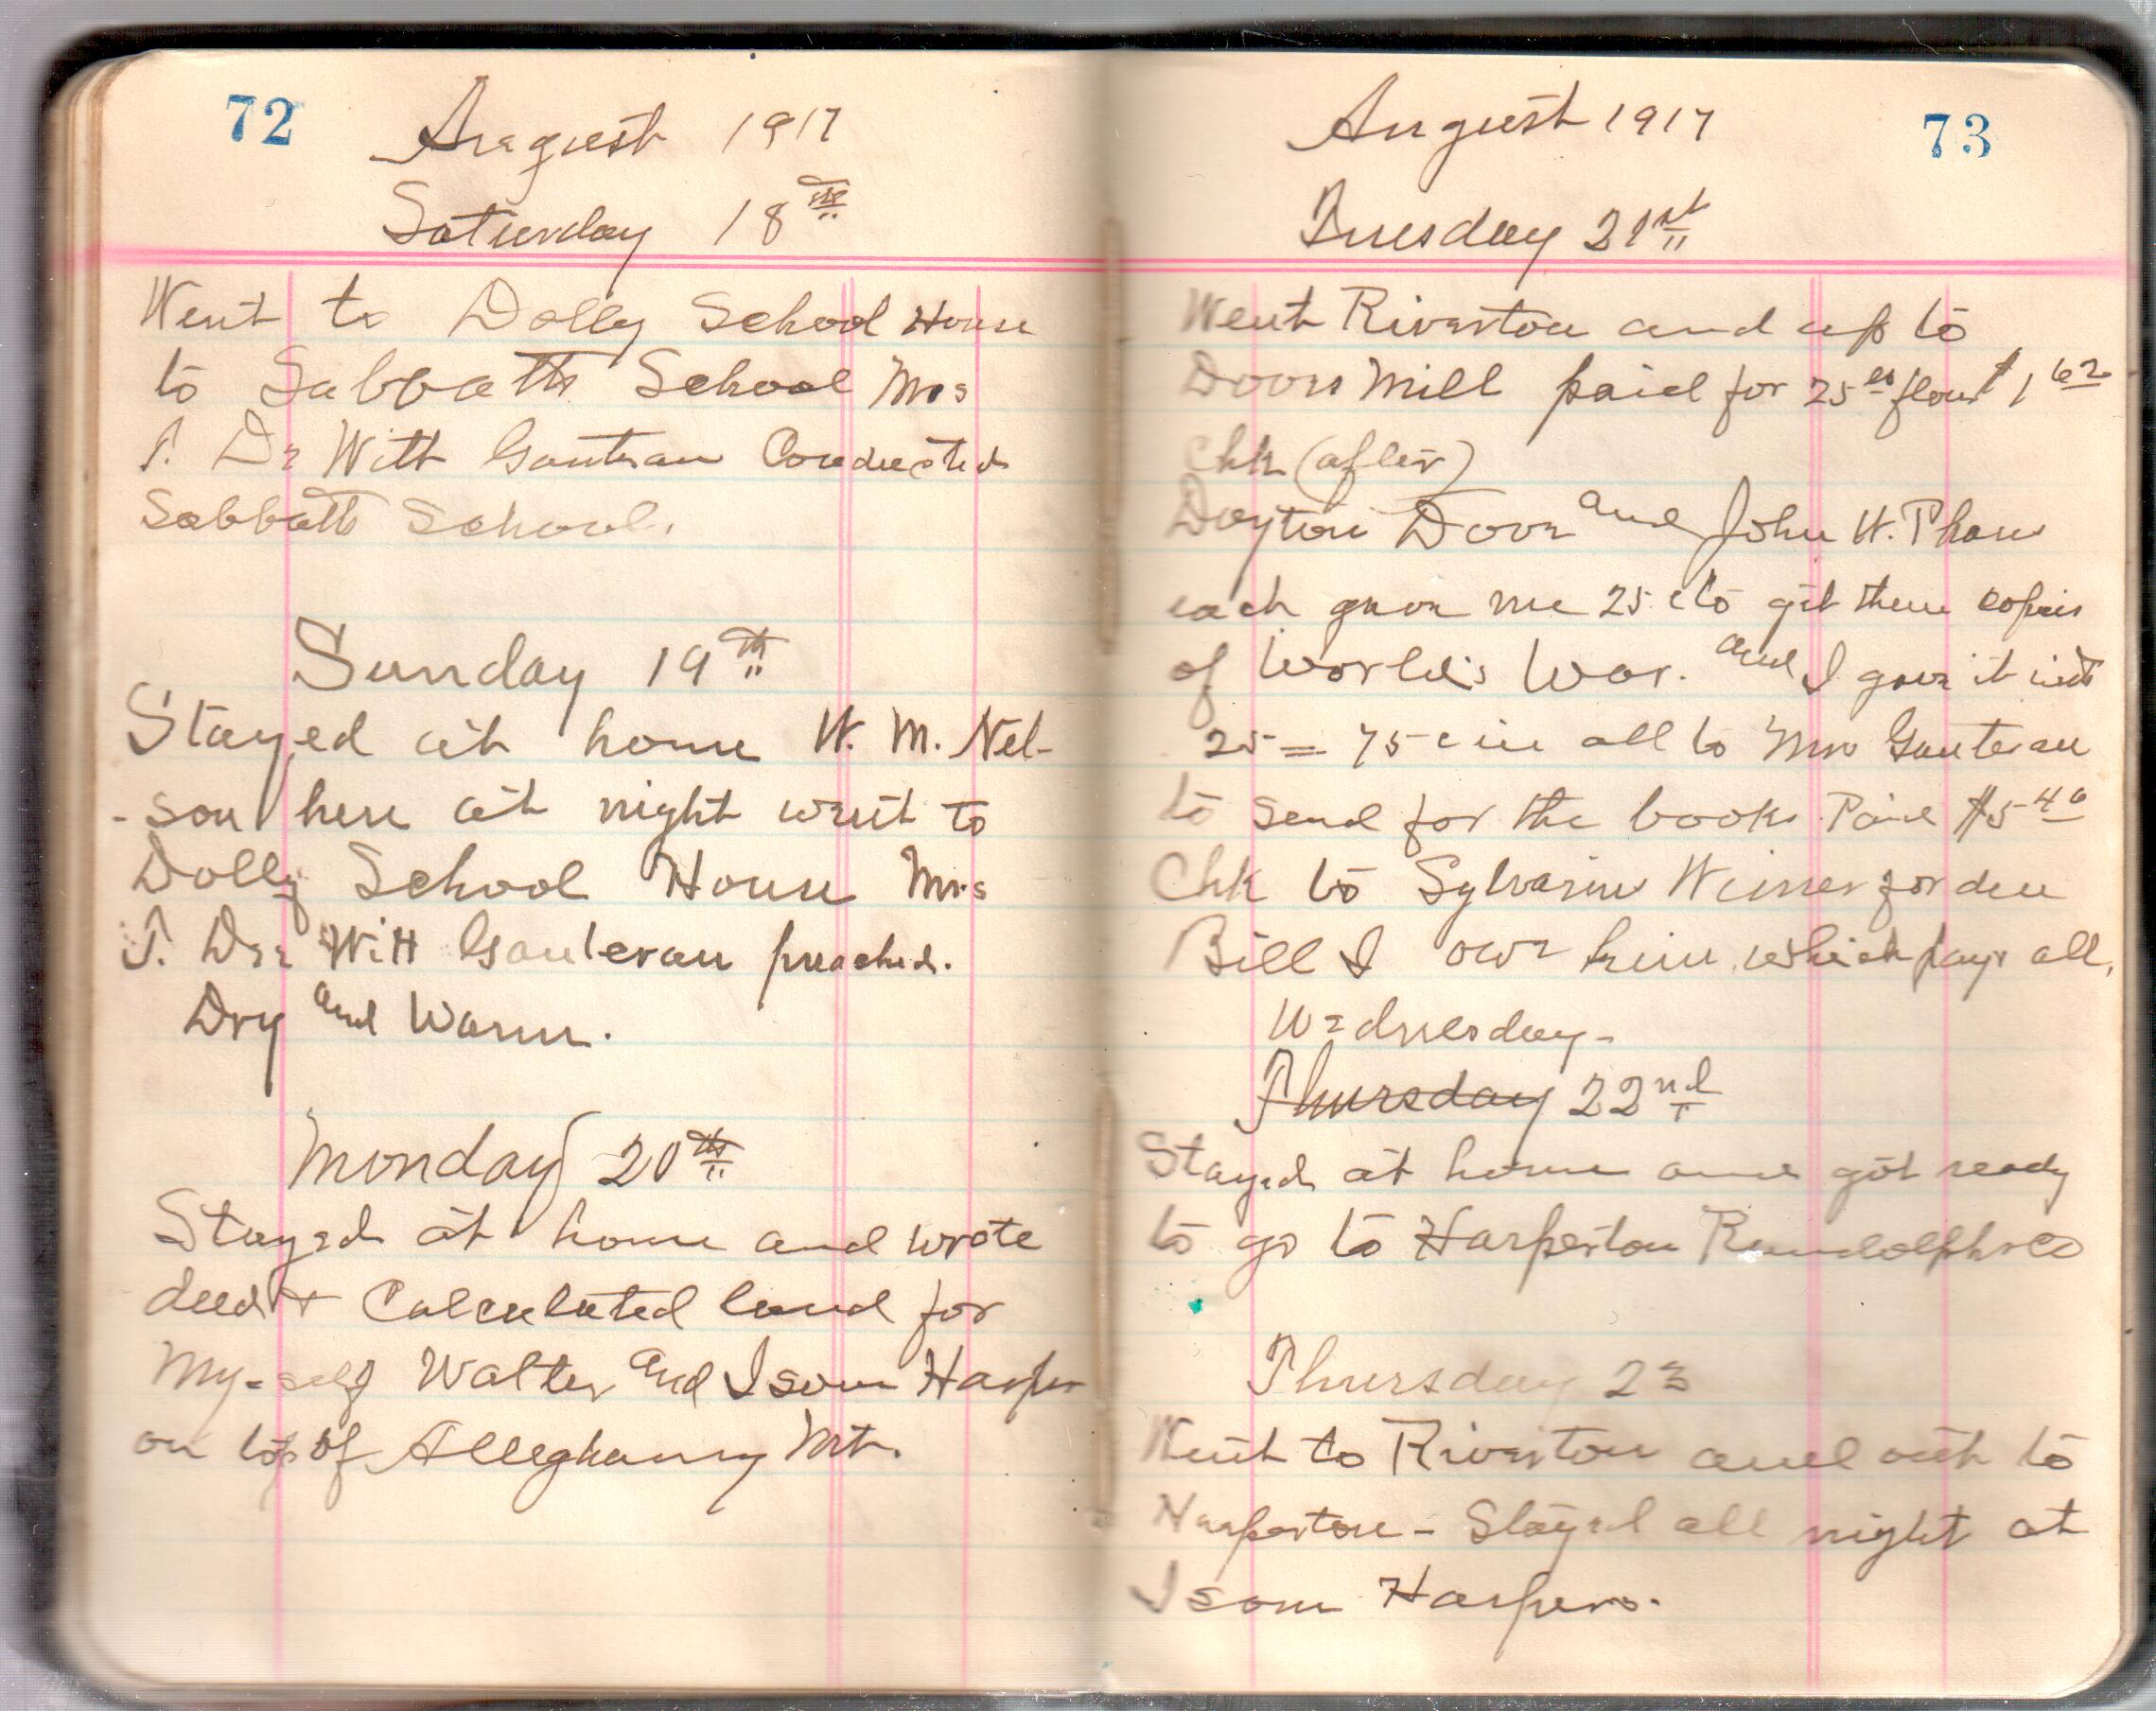 72
August 1917
Saturday 18th
Went to Dolly School House
to Sabbath School Mrs
T. De Witt Gauterau Conducted
Sabbath School.
Sunday 19th
Stayed at home W. M. Nel-
-son here at night went to
Dolly School House Mrs
T. Dee Witt Gauterau preached.
Dry and Warm.
Monday 20th
Stayed at home and wrote
deed + Calculated land for
My-self Walter and Isom Harper
on top of Alleghany Mt.
August 1917
73
Tuesday 21st
Went Riverton and up to
Doors Mill paid for 25 flour $1 62
Chk (after)
Dayton Door and John W. Phare
each gave me 25 c to git them copies
of World's War. and I gave it with
25 = 75 c in all to Mrs Gauterau
to send for the books Paid $5 40
Chk to Sylvanus for due
Bill I owe him which pays all.
Wednesday-
Thursday 22nd
Stayed at home and got ready
to go to Harperton Randolph co
Thursday 23
Went to Riverton and out to
Harperton - Stayed all night at
Isom Harpers.